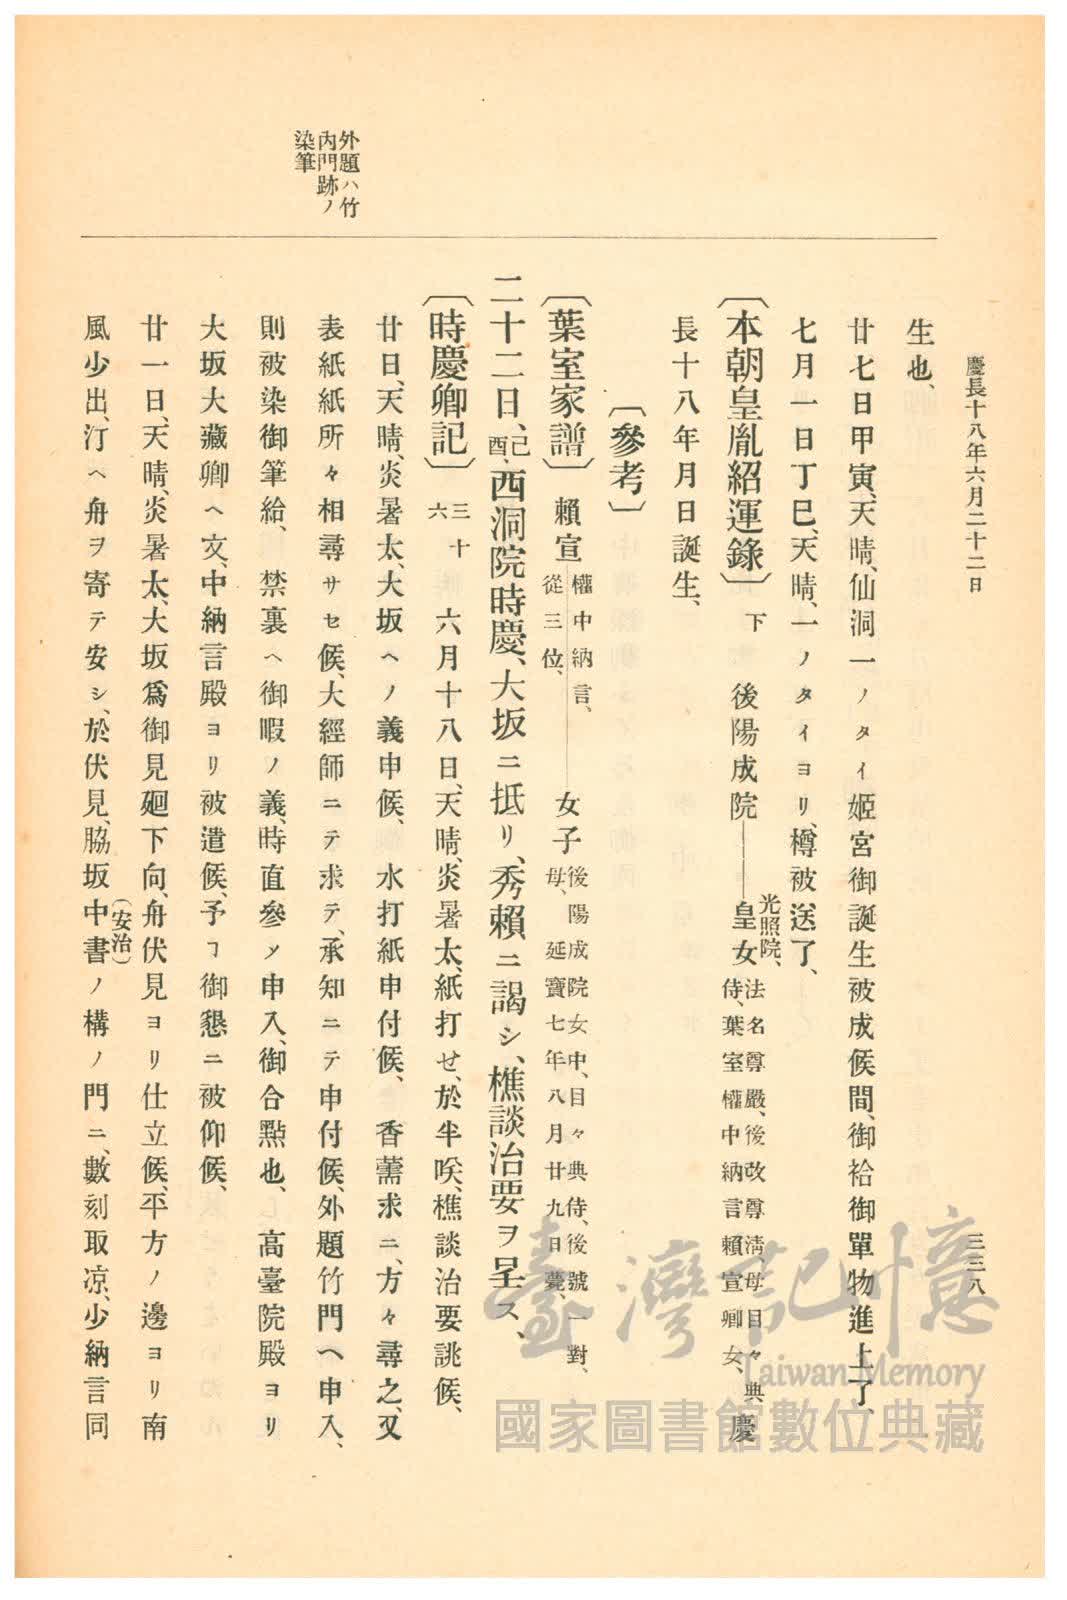 慶長十八年六月二十二日
三三八
生也、
廿七日甲寅、天晴、仙洞一ノタイ姬宮御誕生被成候間、御袷御單物進上了、
七月一日丁巳、天晴、一ノタイヨリ、樽被送了、
〔本朝皇胤紹運錄〕下　後陽成院――皇女
光照院、
法名尊嚴、後改尊清、母目々典
侍、葉室權中納言賴宣卿女、慶
長十八年月日誕生、
〔參考〕
〔葉室家譜〕賴宣
權中納言、
從三位、
女子
後陽成院女中、目々典侍、後號一對、
母、延寶七年八月廿九日薨、
二十二日、己酉、西洞院時慶、大坂ニ抵リ、秀賴ニ謁シ、樵談治要ヲ呈ス、
〔時慶卿記〕三十六　六月十八日、天晴、炎暑太、紙打せ、於半咲、樵談治要誂候、
廿日、天晴、炎暑太、大坂ヘノ義申候、水打紙申付候、香薷求ニ、方々尋之、又
表紙紙所々相尋サセ候、大經師ニテ求テ、承知ニテ申付候、外題竹門ヘ申入、
外題ハ竹
內門跡ノ
染筆
則被染御筆給、禁裏ヘ御暇ノ義、時直參メ申入、御合點也、高臺院殿ヨリ
大坂大藏卿ヘ文、中納言殿ヨリ被遣候、予フ御懇ニ被仰候、
廿一日、天晴、炎暑太、大坂爲御見廻下向、舟伏見ヨリ仕立候、平方ノ邊ヨリ南
風少出、汀ヘ舟ヲ寄テ安シ、於伏見、脇坂中書ノ構ノ門ニ、數刻取凉、少納言同
（安治）
臺灣記憶
Taiwan Memory
國家圖書館數位典藏